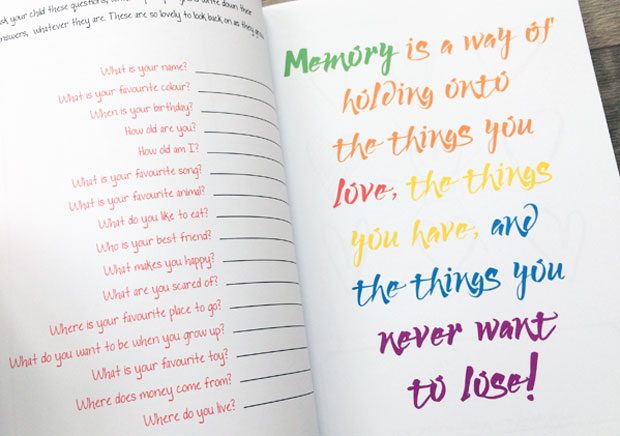 ask your child these questions,
answers, whatever they are. These are so lovely to look back on as they
What is your name?
What is your favourite colour?
When is your birthday?
How old are you?
How old am I?
What is your favourite song?
What is your favourite animal?
What do you like to eat?
Who is your best friend?
What makes you happy?
What are you scared of?
Where is your favourite place to go?
What do you want to be when you grow up?
What is your favourite toy?
Where does money come from?
Where do you live?
Memory is a way of
holding onto
the things you
love, the things
you have, and
the things you
never want
to lose!